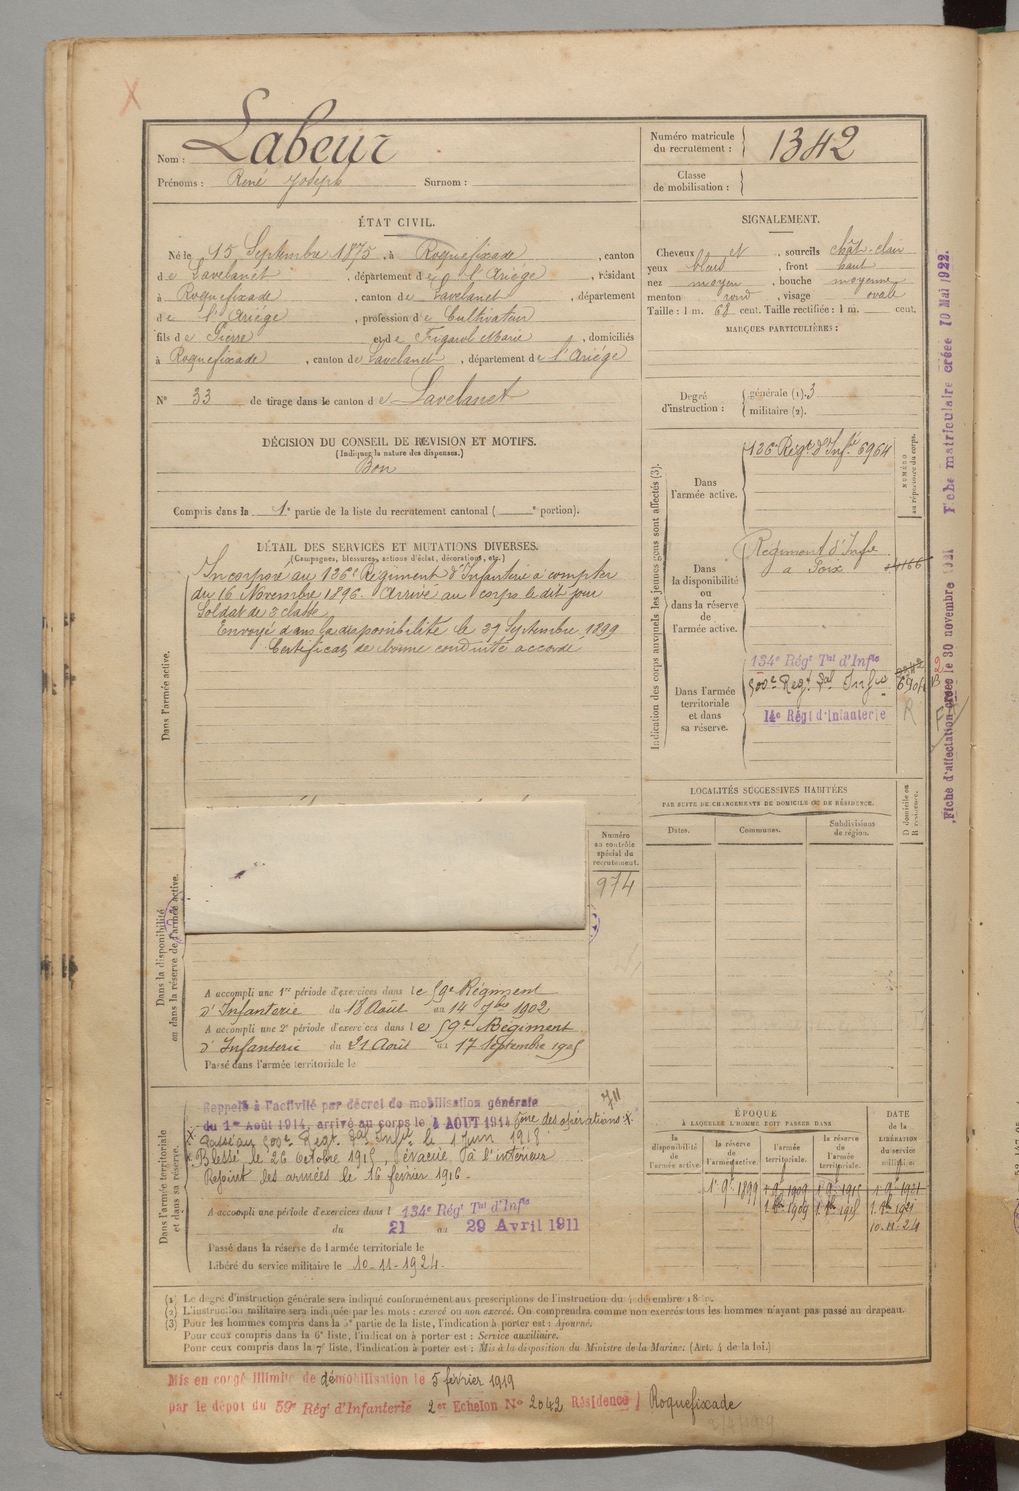 Nom : Labeur
Prénoms : René Joseph Surnom :
Numéro matricule du recrutement : 1342
Classe de mobilisation :
ÉTAT CIVIL.
Né le 15 Septembre 1875, à Roquefixade, canton
de Lavelanet, département de l'Ariège, résidant
à Roquefixade, canton de Lavelanet, département
de l'Ariège, profession de Cultivateur
fils de Pierre et de Figarol Marie, domiciliés
à Roquefixade, canton de Lavelanet, département de l'Ariège
N° 33 de tirage dans le canton de Lavelanet
DÉCISION DU CONSEIL DE REVISION ET MOTIFS.
(Indiquez la nature des dispenses.)
Bon
Compris dans la 1e partie de la liste du recrutement cantonal ( e portion).
SIGNALEMENT.
Cheveux et, sourcils chât-clair
yeux bleus, front haut
nez moyen, bouche moyenne
menton rond, visage ovale
Taille : 1 m. 68 cent. Taille rectifiée : 1 m. cent.
MARQUES PARTICULIÈRES :
Degré d'instruction :
générale (1). 3
militaire (2).
Indication des corps auxquels les jeunes gens sont affectés (3).
NUMÉRO au répertoire du corps.
Dans l'armée active.
136e Régt d'Infie 6964
Dans la disponibilité ou dans la réserve de l'armée active.
Régiment d'Infie
à Foix
Dans l'armée territoriale et dans sa réserve.
134e Régt Tal d'Infie
500e Régt Tal Infie
14e Régt d'Infanterie
R
DÉTAIL DES SERVICES ET MUTATIONS DIVERSES.
(Campagnes, blessures, actions d'éclat, décorations, etc.)
Dans l'armée active.
Incorporé au 136e Régiment d'Infanterie à compter
du 16 Novembre 1896. Arrivé au corps le dit jour
Soldat de 2 classe
Envoyé dans la disponibilité le 31 Septembre 1899
Certificat de bonne conduite accordé
Dans la disponibilité ou dans la réserve de l'armée active.
Numéro au contrôle spécial du recrutement.
974
A accompli une 1re période d'exercices dans le 59e Régiment
d'Infanterie du 18 Août au 14 7bre 1902
A accompli une 2e période d'exercices dans le 59e Régiment
d'Infanterie du 21 Août au 17 Septembre 1905
Passé dans l'armée territoriale le
Dans l'armée territoriale et dans sa réserve.
711
Rappelé à l'activité par décret de mobilisation générale
du 1er Août 1914, arrivé au corps le 4 AOUT 1914 Zone des opérations X.
X Passé au 500e Régt Tal Infie le 1 Juin 1915
Blessé le 26 Octobre 1915, évacué à l'intérieur
Rejoint les armées le 16 février 1916.
A accompli une période d'exercices dans l 134e Régt Tal d'Infie
du 21 au 29 Avril 1911
Passé dans la réserve de l'armée territoriale le
Libéré du service militaire le 10-11-1924.
LOCALITÉS SUCCESSIVES HABITÉES
PAR SUITE DE CHANGEMENTS DE DOMICILE OU DE RÉSIDENCE.
Dates. Communes. Subdivisions de région. D domicile ou R résidence.
ÉPOQUE
À LAQUELLE L'HOMME DOIT PASSER DANS
DATE de la LIBÉRATION du service militaire.
la disponibilité de l'armée active. la réserve de l'armée active. l'armée territoriale. la réserve de l'armée territoriale.
1 9e 1899 1 9e 1909 1 9e 1915 1 9e 1921
1 8bre 1909 1 8bre 1915 1 8bre 1921
10-11-24
(1) Le degré d'instruction générale sera indiqué conformément aux prescriptions de l'instruction du
(2) L'instruction militaire sera indiquée par les mots : exercé ou non exercé. On comprendra comme non exercés tous les hommes n'ayant pas passé au drapeau.
(3) Pour les hommes compris dans la 5e partie de la liste, l'indication à porter est : Ajourné.
Pour ceux compris dans la 6e liste, l'indication à porter est : Service auxiliaire.
Pour ceux compris dans la 7e liste, l'indication à porter est : Mis à la disposition du Ministre de la Marine. (Art. 4 de la loi.)
Mis en congé illimité de démobilisation le 5 février 1919
par le dépôt du 59e Régt d'Infanterie 2er Echelon N° 2042 Résidence Roquefixade
Fiche d'affectation créée le 30 novembre 1921 Fiche matriculaire créée 10 Mai 1922.